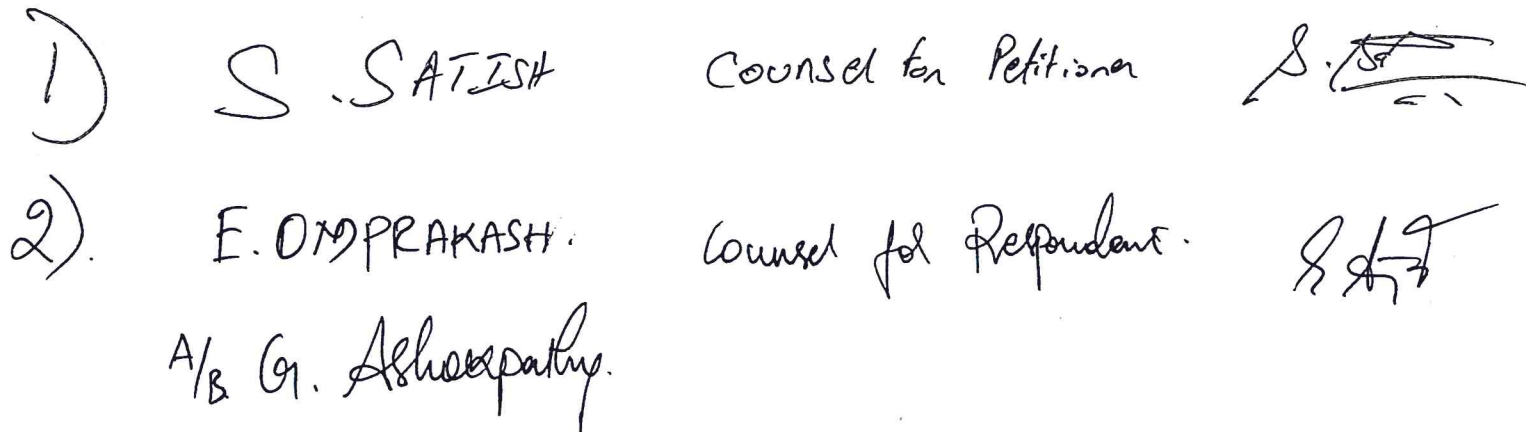 1) S. SATISH Counsel for Petitioner
2). E. OMPRAKASH. Counsel for Respondent.
A/B. G. Ashokpathy.